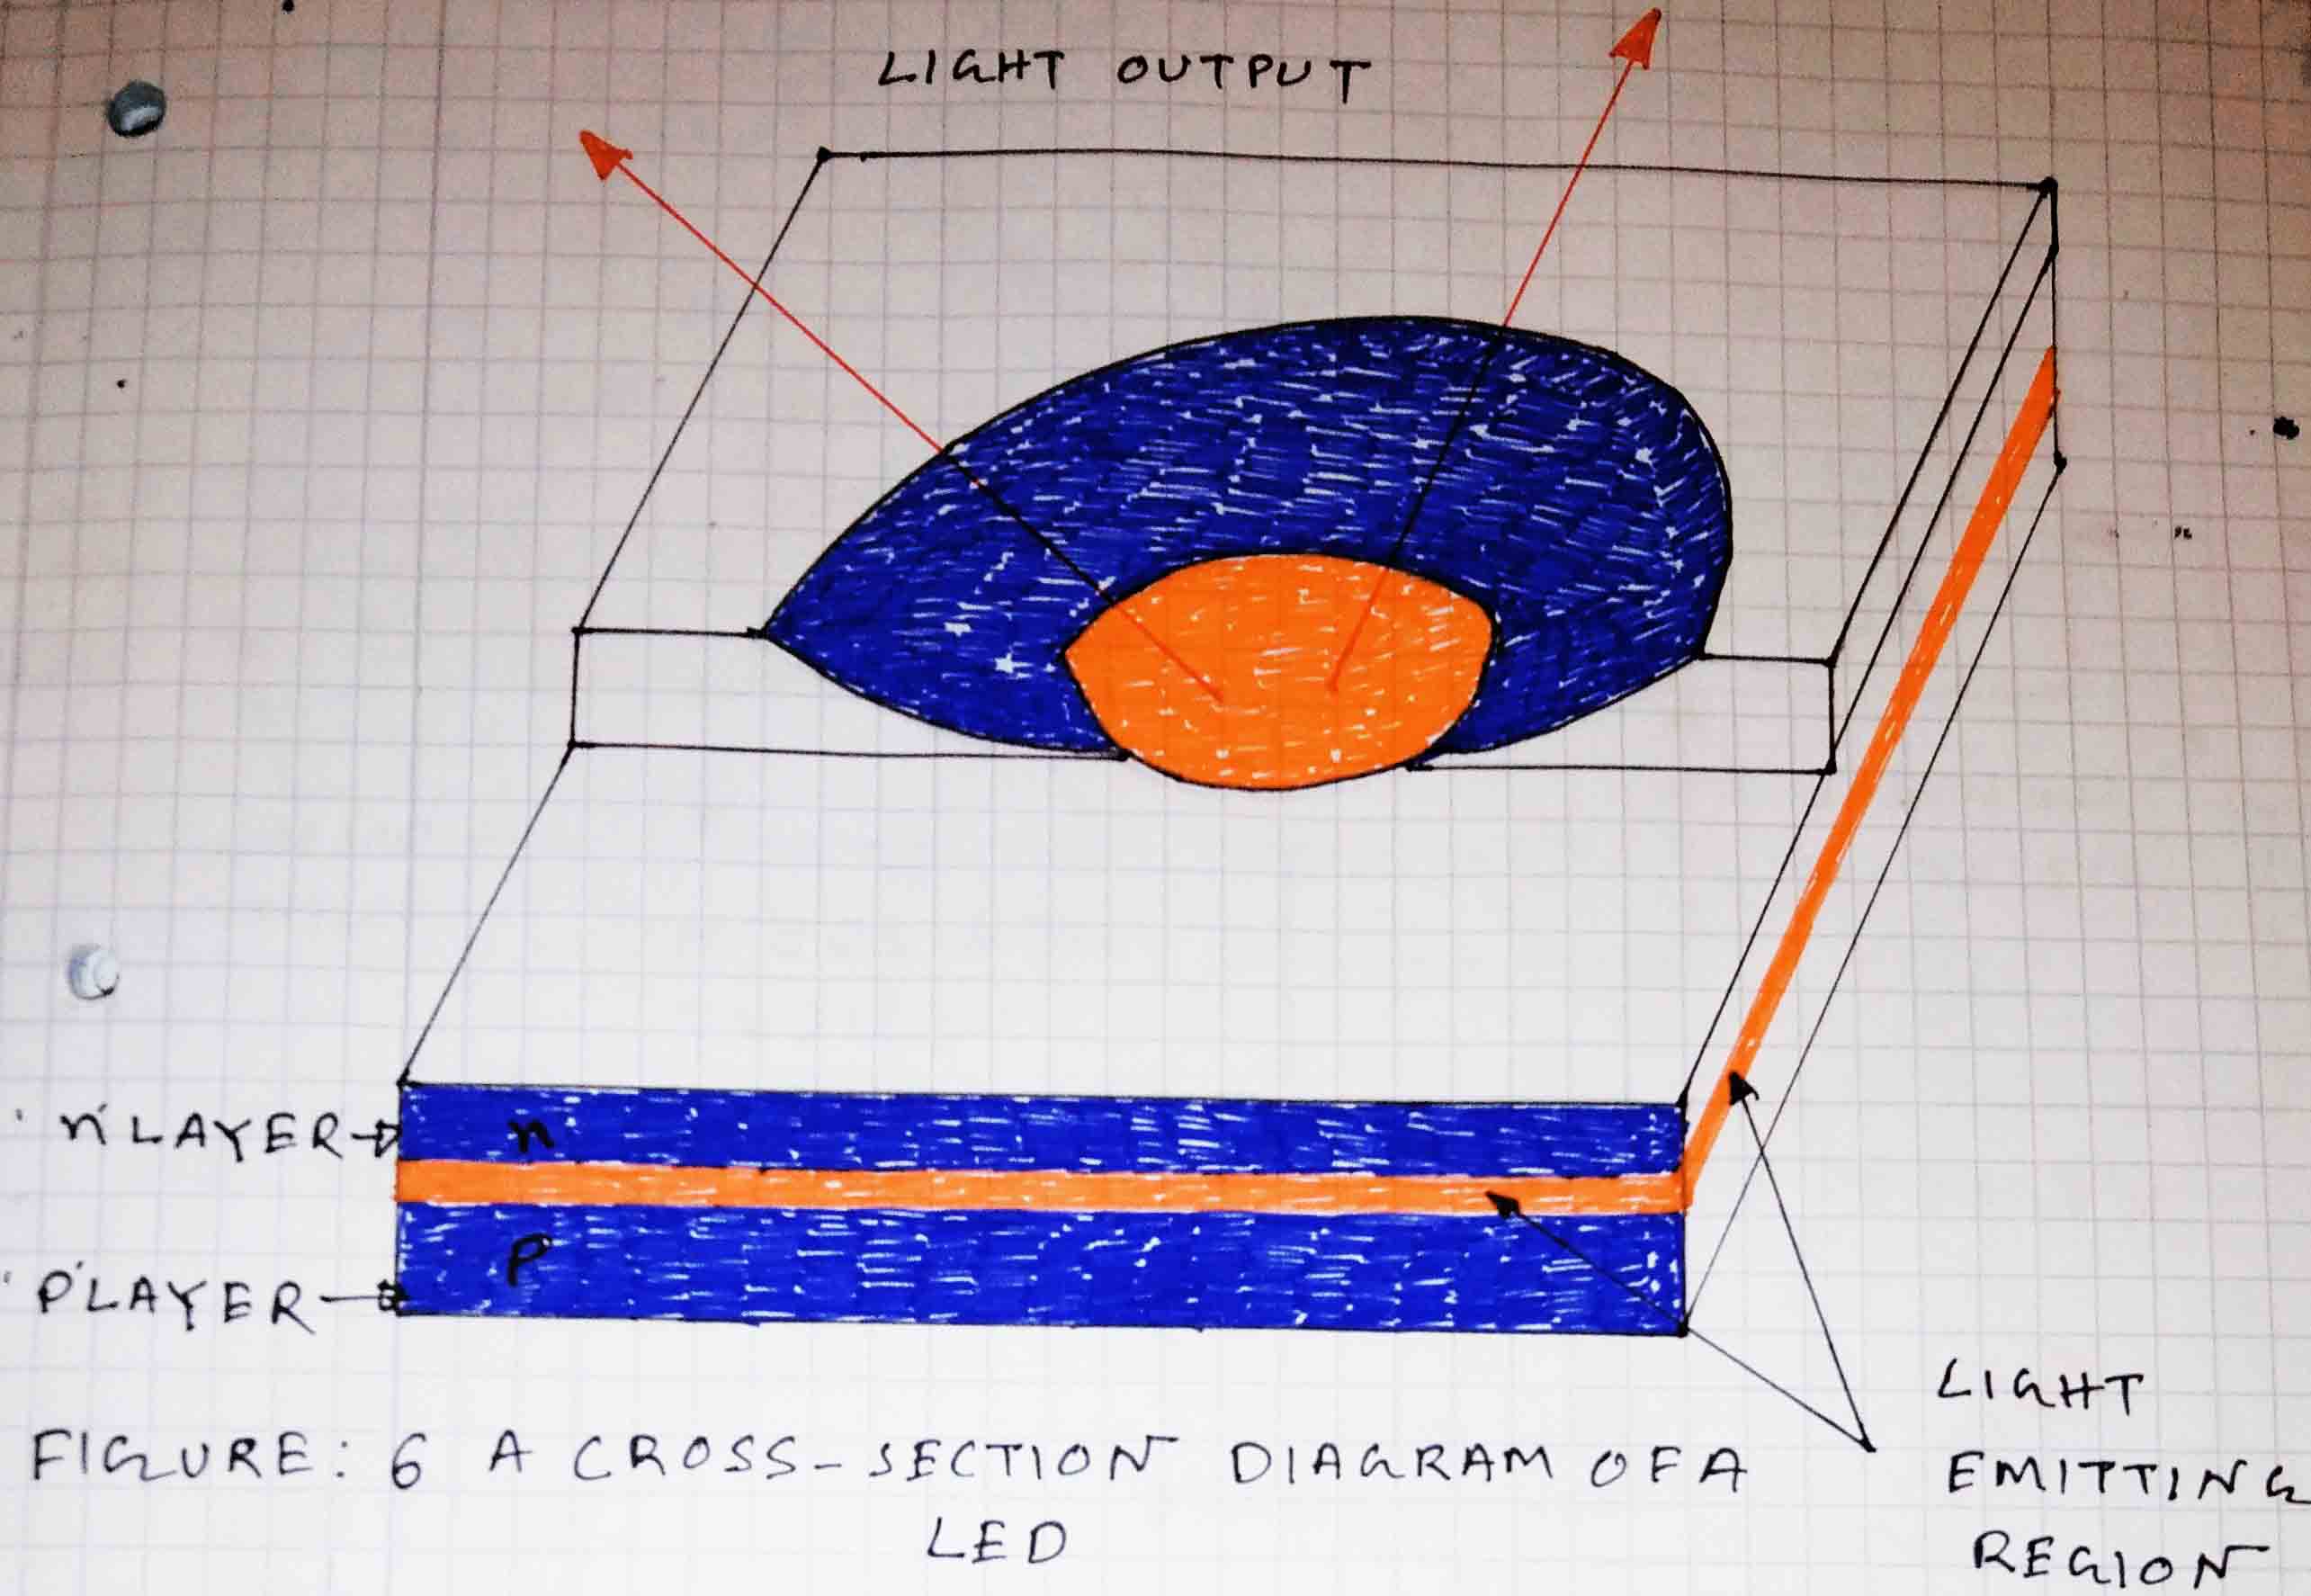 LIGHT OUTPUT
'n' LAYER
n
'P' LAYER
P
LIGHT
EMITTING
REGION
FIGURE: 6 A CROSS-SECTION DIAGRAM OF A
LED